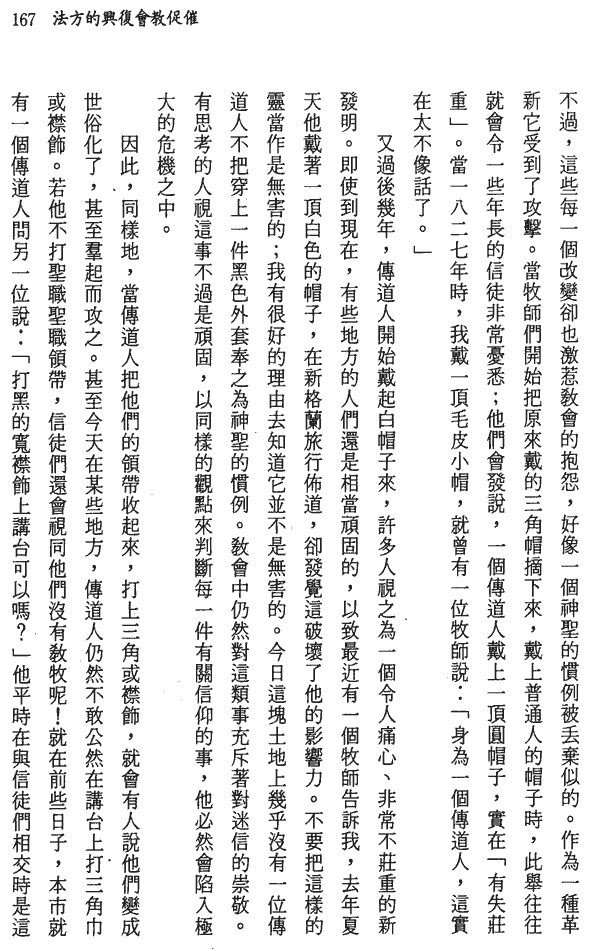 167 法方的興復會教促催
不過，這些每一個改變卻也激惹敎會的抱怨，好像一個神聖的慣例被丟棄似的。作為一種革
新它受到了攻擊。當牧師們開始把原來戴的三角帽摘下來，戴上普通人的帽子時，此舉往往
就會令一些年長的信徒非常憂悉；他們會發說，一個傳道人戴上一頂圓帽子，實在「有失莊
重」。當一八二七年時，我戴一頂毛皮小帽，就曾有一位牧師說：「身為一個傳道人，這實
在太不像話了。」
又過後幾年，傳道人開始戴起白帽子來，許多人視之為一個令人痛心、非常不莊重的新
發明。即使到現在，有些地方的人們還是相當頑固的，以致最近有一個牧師告訴我，去年夏
天他戴著一頂白色的帽子，在新格蘭旅行佈道，卻發覺這破壞了他的影響力。不要把這樣的
靈當作是無害的；我有很好的理由去知道它並不是無害的。今日這塊土地上幾乎沒有一位傳
道人不把穿上一件黑色外套奉之為神聖的慣例。敎會中仍然對這類事充斥著對迷信的崇敬。
有思考的人視這事不過是頑固，以同樣的觀點來判斷每一件有關信仰的事，他必然會陷入極
大的危機之中。
因此，同樣地，當傳道人把他們的領帶收起來，打上三角或襟飾，就會有人說他們變成
世俗化了，甚至羣起而攻之。甚至今天在某些地方，傳道人仍然不敢公然在講台上打三角巾
或襟飾。若他不打聖職聖職領帶，信徒們還會視同他們沒有敎牧呢！就在前些日子，本市就
有一個傳道人問另一位說：「打黑的寬襟飾上講台可以嗎？」他平時在與信徒們相交時是這